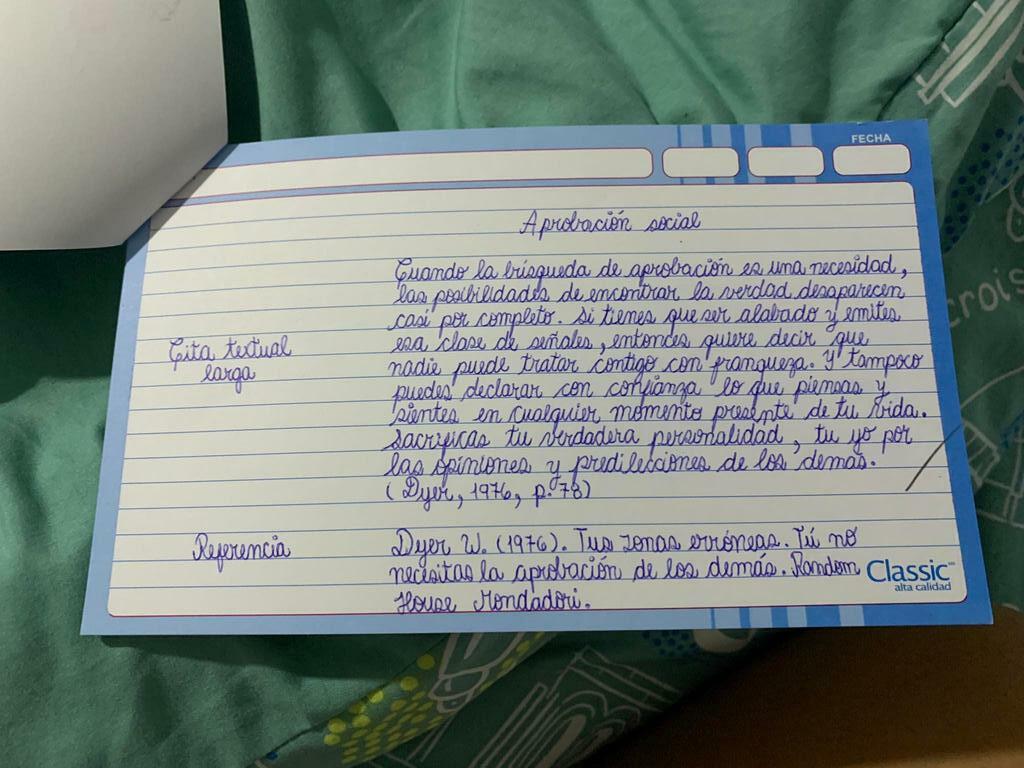 FECHA
Aprobación social
Cuando la búsqueda de aprobación es una necesidad,
las posibilidades de encontrar la verdad desaparecen
casi por completo. Si tienes que ser alabado y emites
esa clase de señales, entondes quiere decir que
nadie puede tratar contigo con franqueza. Y tampoco
puedes declarar con confianza lo que piensas y
sientes en cualquier momento presente de tu vida.
Sacrificas tu verdadera personalidad, tu yo por
las opiniones y predilecciones de los demás.
(Dyer, 1976, p. 78)
Cita textual
larga
Referencia
Dyer W. (1976). Tus zonas erróneas. Tú no
necesitas la aprobación de los demás. Random
House Mondadori.
Classic
alta calidad
crois